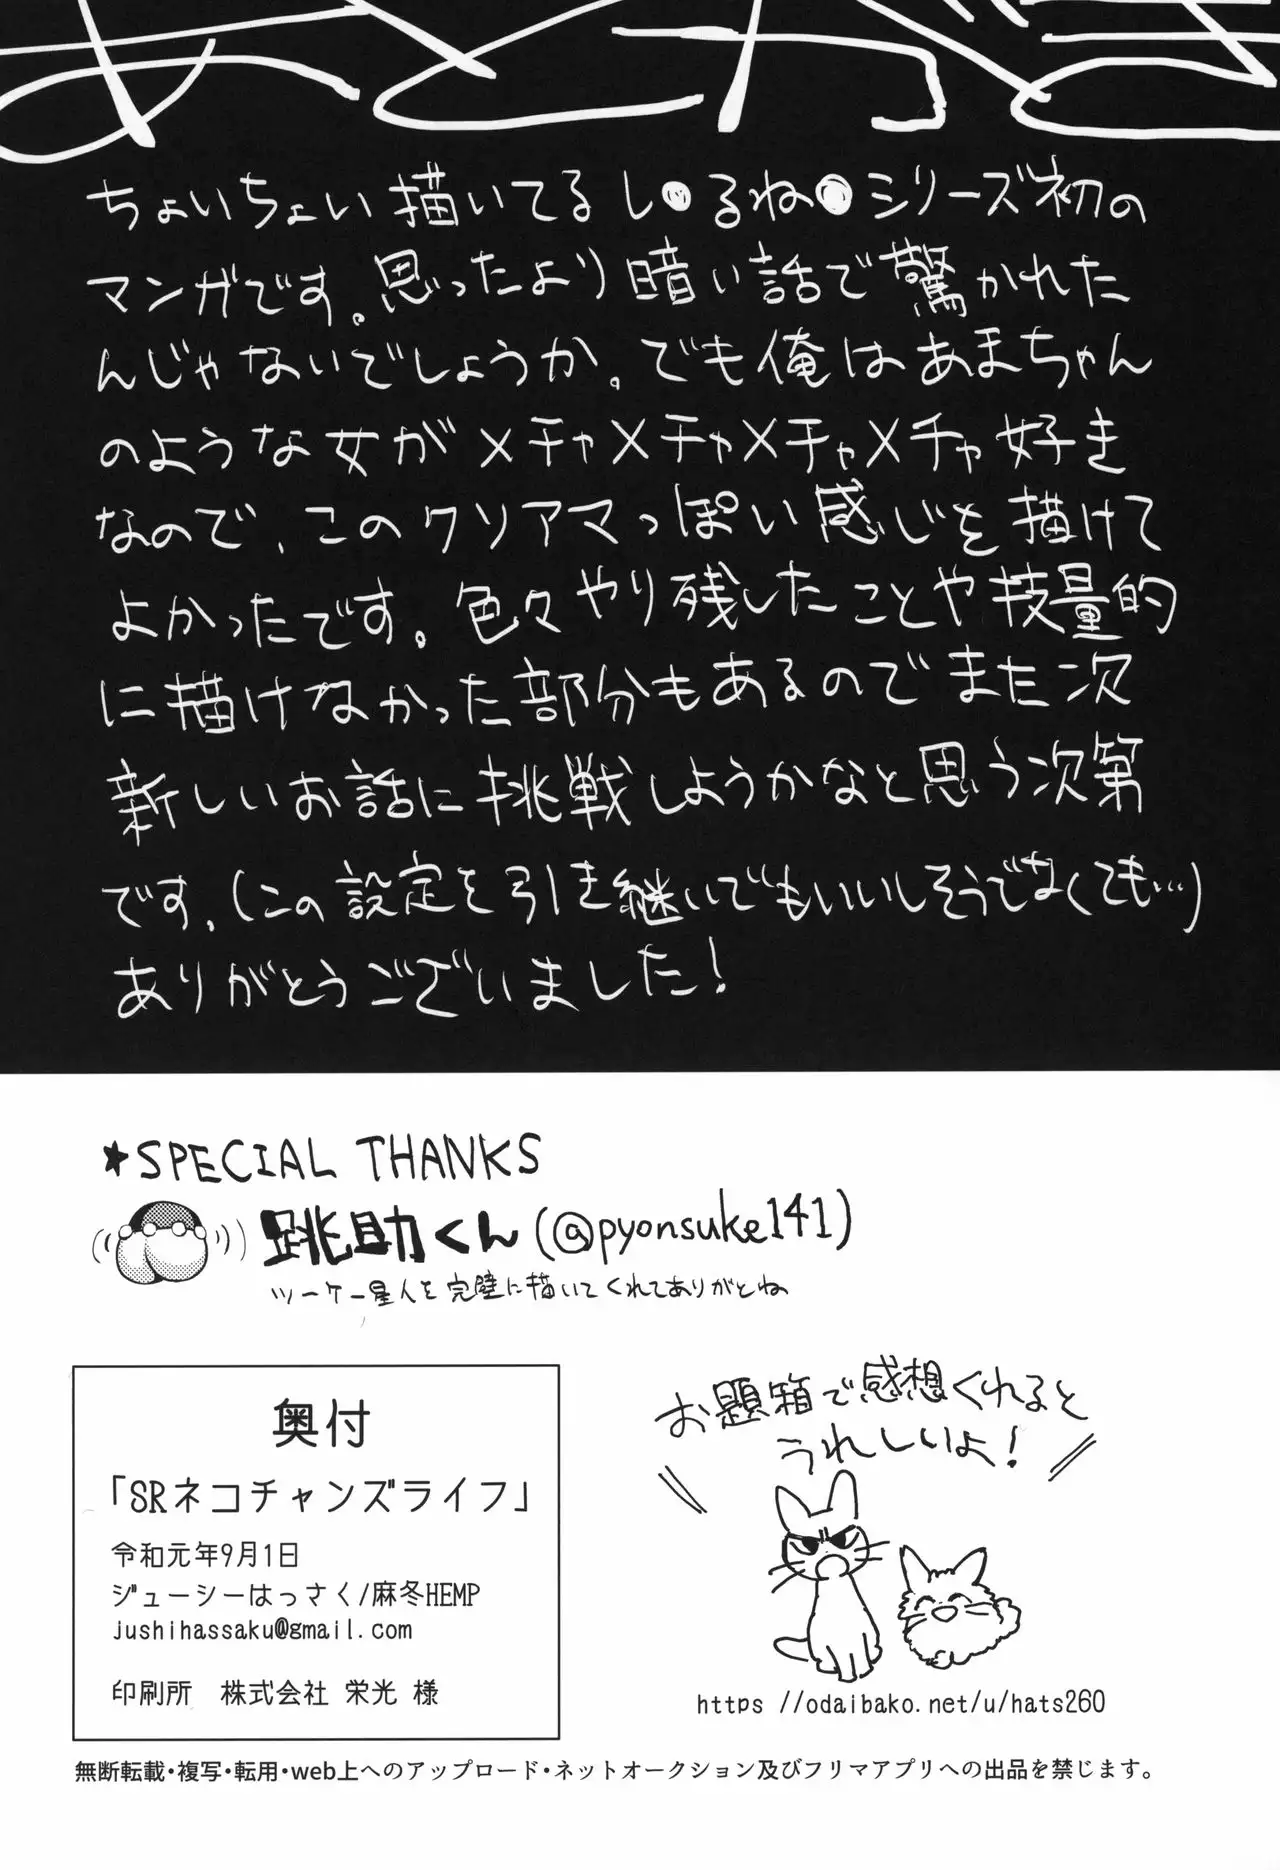 あとがき
ちょいちょい描いてるし●るね●シリーズ初の
マンガです。思ったより暗い話で驚かれた
んじゃないでしょうか。でも俺はあまちゃん
のような女がメチャメチャメチャメチャ好き
なので、このクソアマっぽい感じを描けて
よかったです。色々やり残したことや技量的
に描けなかった部分もあるのでまた次
新しいお話に挑戦しようかなと思う次第
です。(この設定を引き継いでもいいしそうでなくても…)
ありがとうございました!
★SPECIAL THANKS
跳助くん(@pyonsuke141)
ツーケー星人を完璧に描いてくれてありがとね
奥付
「SRネコチャンズライフ」
令和元年9月1日
ジューシーはっさく/麻冬HEMP
jushihassaku@gmail.com
印刷所 株式会社 栄光 様
お題箱で感想くれると
うれしいよ!
https //odaibako.net/u/hats260
無断転載・複写・転用・web上へのアップロード・ネットオークション及びフリマアプリへの出品を禁じます。